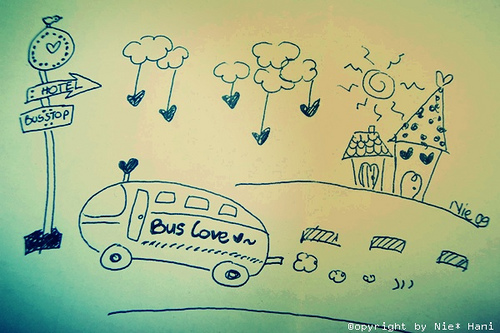 HOTEL
BUSSTOP
BUS Love
Nie 09
©opyright by Nie* Hani